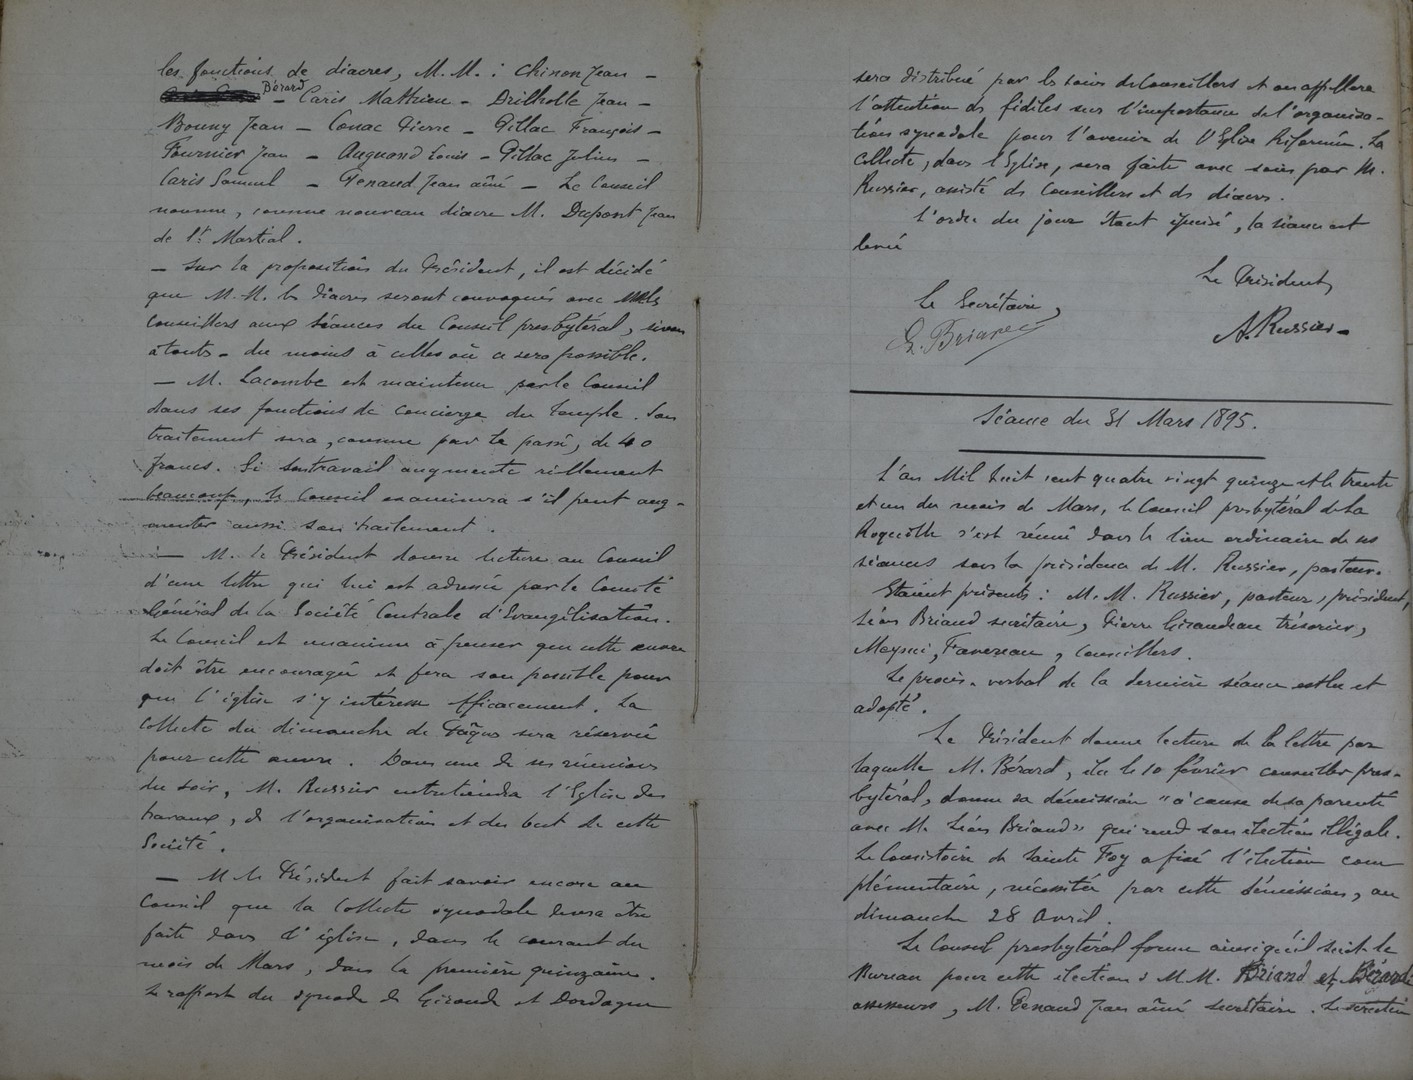 les fonctions de diacres, M.M. : Chinon Jean –
Bérard
– Caris Mathieu – Drilholle Jean –
Bouny Jean – Conac Pierre – Pillac François –
Fournier Jean – Augnond Louis – Pillac Julien –
Caris Samuel – Penaud Jean aîné – Le Conseil
nomme, comme nouveau diacre M. Dupont Jean
de St Martial.
– Sur la proposition du Président, il est décidé
que M.M. les diacres seront convoqués avec MM les
conseillers aux séances du Conseil presbytéral, sinon
à toutes – du moins à celles où ce sera possible.
– M. Lacombe est maintenu par le Conseil
dans ses fonctions de concierge du Temple. Son
traitement sera, comme par le passé, de 40
francs. Si son travail augmente réellement
beaucoup, le Conseil examinera s'il peut aug-
menter aussi son traitement.
– M. le Président donne lecture au Conseil
d'une lettre qui lui est adressée par le Comité
Général de la Société Centrale d'Evangélisation.
Le Conseil est unanime à penser que cette œuvre
doit être encouragée et fera son possible pour
que l'église s'y intéresse efficacement. La
collecte du dimanche de Pâques sera réservée
pour cette œuvre. Dans une de ses réunions
du soir, M. Russier entretiendra l'Eglise des
travaux, de l'organisation et du but de cette
Société.
– M le Président fait savoir encore au
Conseil que la Collecte synodale devra être
faite dans l'église, dans le courant du
mois de Mars, dans la première quinzaine.
Le rapport du synode de Gironde et Dordogne
sera distribué par les soins des Conseillers et on appellera
l'attention des fidèles sur l'importance de l'organisa-
tion synodale pour l'avenir de l'Eglise Réformée. La
Collecte, dans l'Eglise, sera faite avec soin par M.
Russier, assisté des Conseillers et des diacres.
L'ordre du jour étant épuisé, la séance est
levée
Le Président,
Le Secrétaire,
A. Russier –
L. Briand
Séance du 31 Mars 1895.
L'an Mil huit cent quatre vingt quinze et le trente
et un du mois de Mars, le Conseil presbytéral de La
Roquille s'est réuni dans le lieu ordinaire de ses
séances sous la présidence de M. Russier, pasteur.
Etaient présents : M.M. Russier, pasteur, président,
Léon Briand secrétaire, Pierre Giraudeau trésorier,
Meynei, Favereau, Conseillers.
Le procès-verbal de la dernière séance est lu et
adopté.
Le Président donne lecture de la lettre par
laquelle M. Bérard, élu le 10 février conseiller pres-
bytéral, donne sa démission "à cause de sa parenté
avec M. Léon Briand" qui rend son élection illégale.
Le Consistoire de Sainte Foy a fixé l'élection com
plémentaire, nécessitée par cette démission, au
dimanche 28 Avril.
Le Conseil presbytéral forme ainsi qu'il suit le
Bureau pour cette élection : M M. Briand et Bérard
assesseurs, M. Penaud Jean aîné secrétaire. Le scrutin